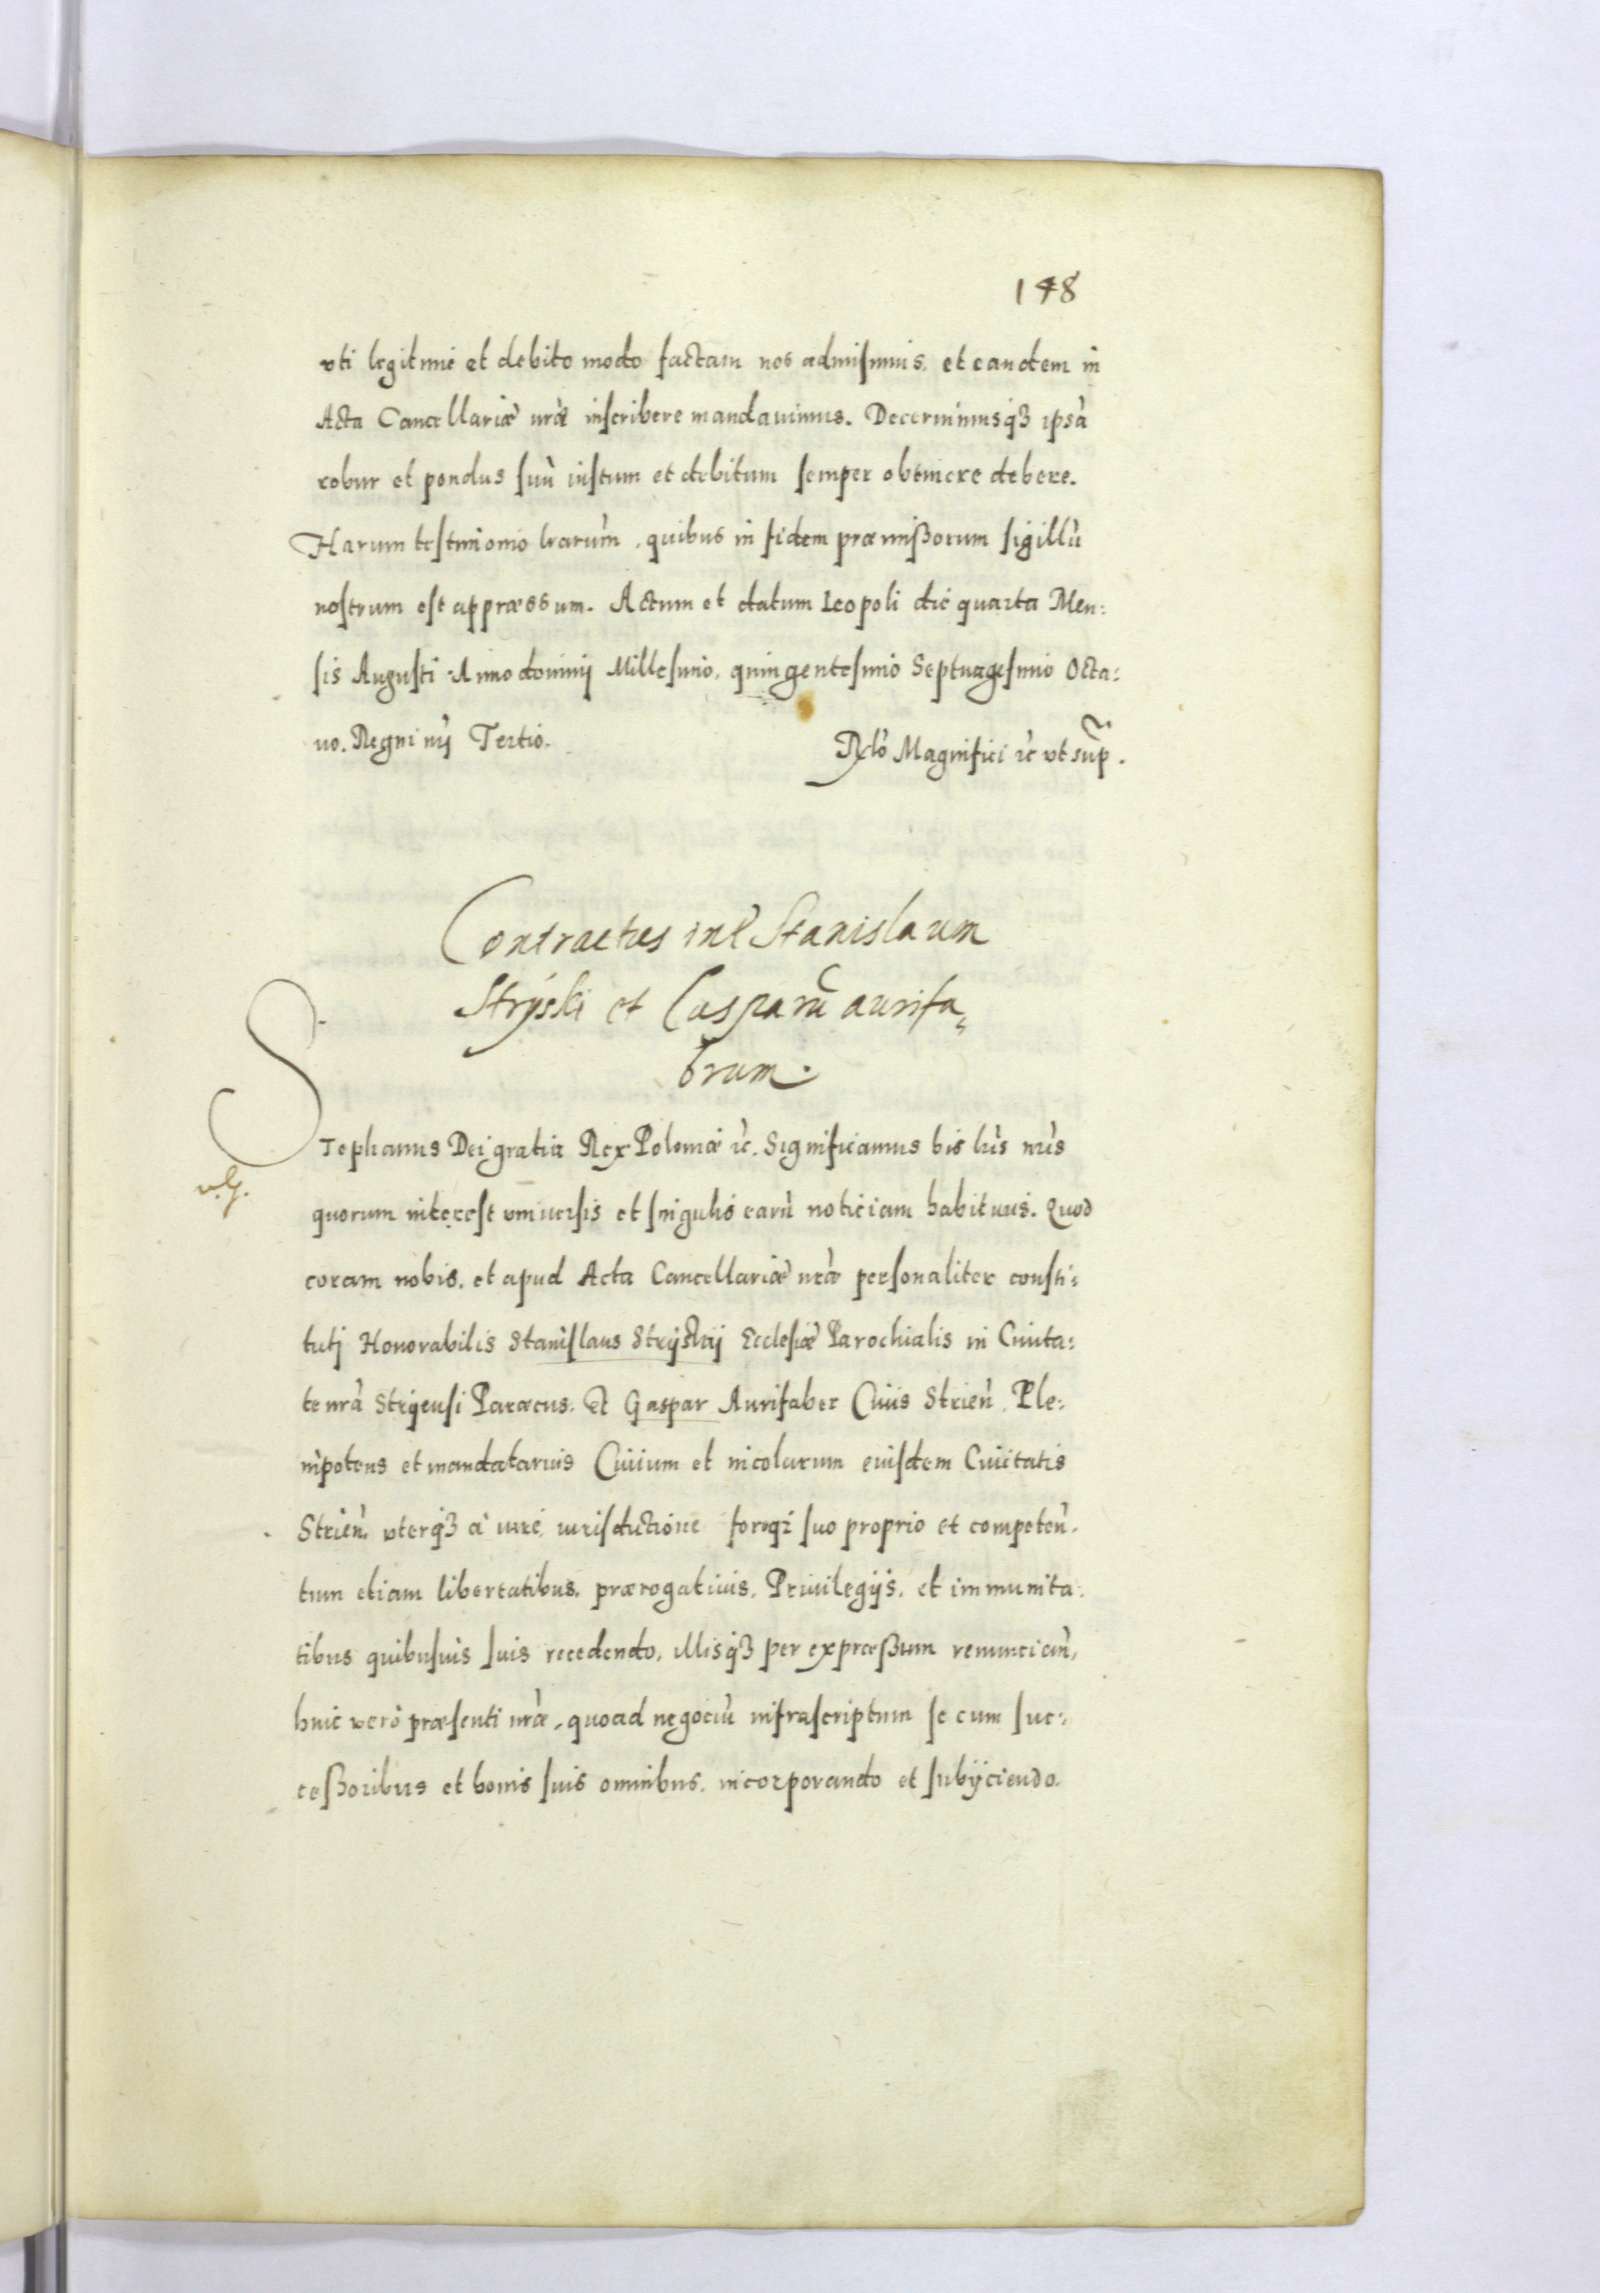 148
vti legitime et debito modo factam nos admisimus, et eandem in
Acta Cancellariæ nr̃æ inscribere mandauimus. Decernimusq₃ ipsã
robur et pondus suũ iustum et debitum semper obtinere debere.
Harum testimonio lrarum̃, quibus in fidem præmißorum sigillũ
nostrum est appræssum. Actum et datum Leopoli die quarta Men:
sis Augusti Anno dominij Millesimo, quingentesimo Septuagesimo Octa:
uo. Regni nr̃j Tertio.
Rẽlo Magnifici rc̃ vt sup̃.
Contractus int̃ Stanislaum
Stryski et Casparũ aurifa„
brum.
Stephanus Dei gratia Rex Poloniæ rc̃. Significamus his lr̃is nr̃is
quorum interest vniuersis et singulis earũ noticiam habituris. Quod
coram nobis, et apud Acta Cancellariæ nr̃æ personaliter consti:
tutj Honorabilis Stanislaus Strijskij Ecclesiæ Parochialis in Ciuita:
te nr̃a Stryensi Paræcus. Et Gaspar Aurifaber Ciuis Strien̄. Ple:
nipotens et mandatarius Ciuium et incolarum eiusdem Ciuitatis
Strien̄. vterq₃ à iure, iurisdictione foroq₃ suo proprio et competen̄.
tum etiam libertatibus, prærogatiuis, Priuilegijs, et immunita:
tibus quibusuis suis recedendo, illisq₃ per expræßum renunciañ,
huic verò præsenti nr̃æ, quoad negociũ infrascriptum se cum suc:
ceßoribus et bonis suis omnibus, incorporando et subijciendo.